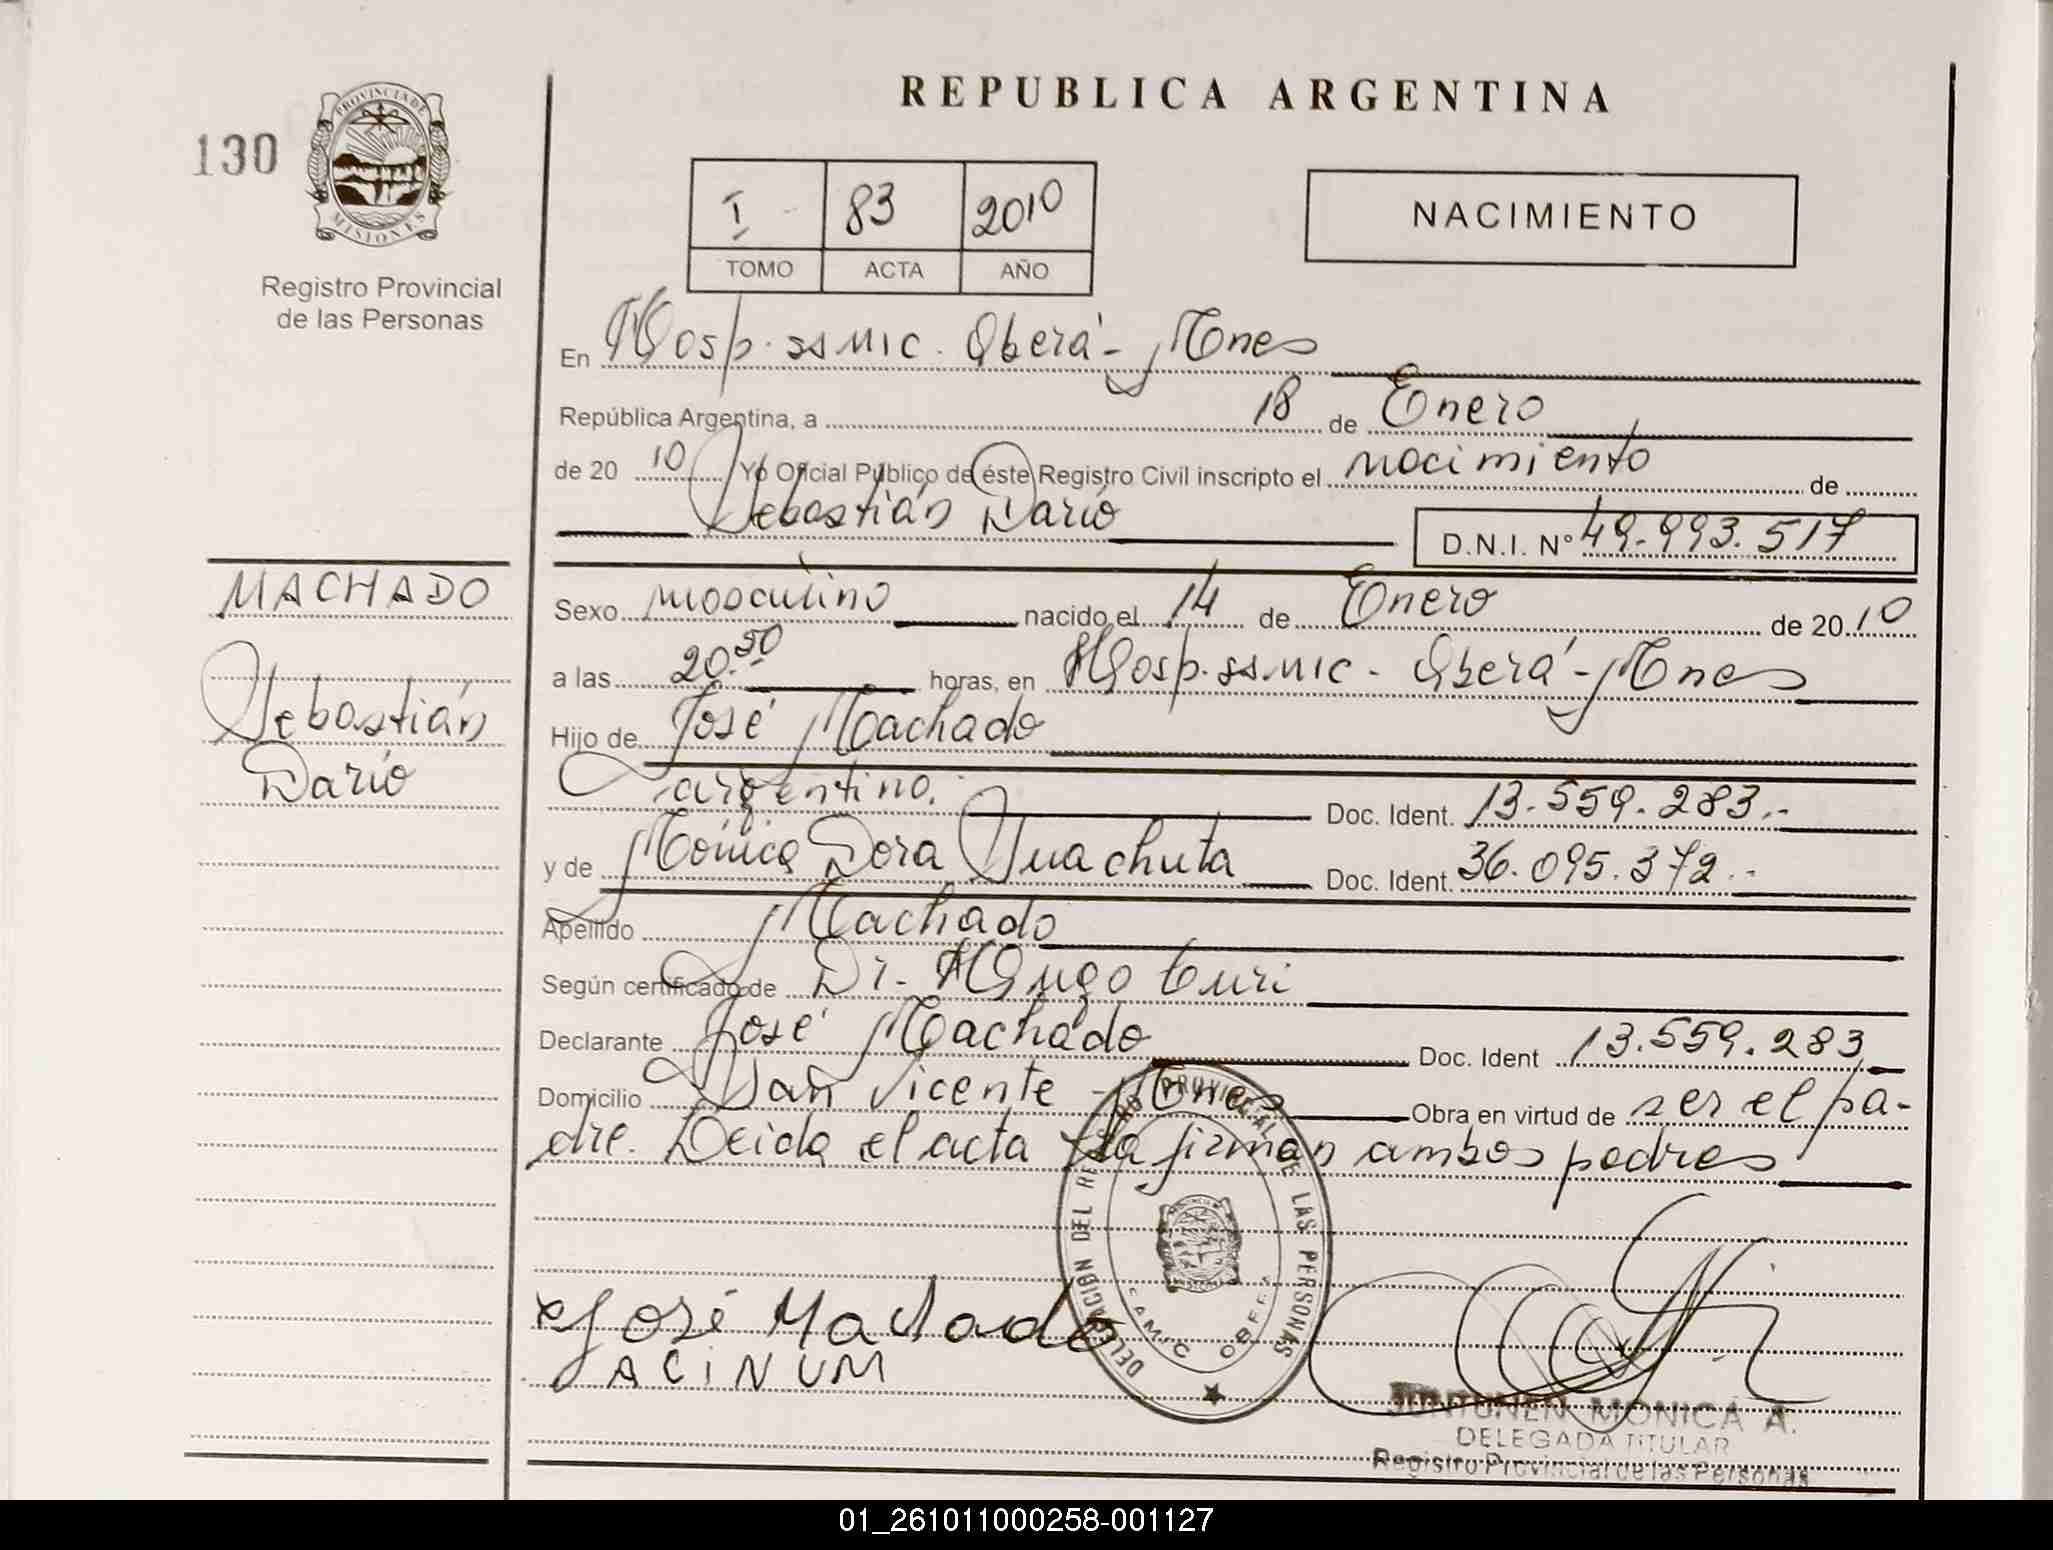 REPUBLICA ARGENTINA
130
PROVINCIA DE
MISIONES
Registro Provincial
de las Personas
I 83 2010
TOMO ACTA AÑO
NACIMIENTO
En Hosp. ss MIC. Oberá - Mnes
República Argentina, a 18 de Enero
de 20 10 Yo Oficial Público de éste Registro Civil inscripto el nacimiento de
Sebastián Darío D.N.I. N° 49.993.517
MACHADO
Sebastián
Darío
Sexo masculino nacido el 14 de Enero de 20 10
a las 20.50 horas, en Hosp. ss. MIC - Oberá - Mnes
Hijo de José Machado
argentino. Doc. Ident. 13.559.283.-
y de Mónica Dora Doc. Ident. 36.095.372.-
Apellido Machado
Según certificado de Dr. Hugo
Declarante José Machado Doc. Ident 13.559.283
Domicilio San Vicente - Mnes Obra en virtud de ser el pa-
dre. Leída el acta la firman ambos padres
DELEGACIÓN DEL REGISTRO PROVINCIAL DE LAS PERSONAS
SAMIC OBERA
José Machado
JUNTUNEN MONICA A.
DELEGADA TITULAR
Registro Provincial de las Personas
01_261011000258-001127